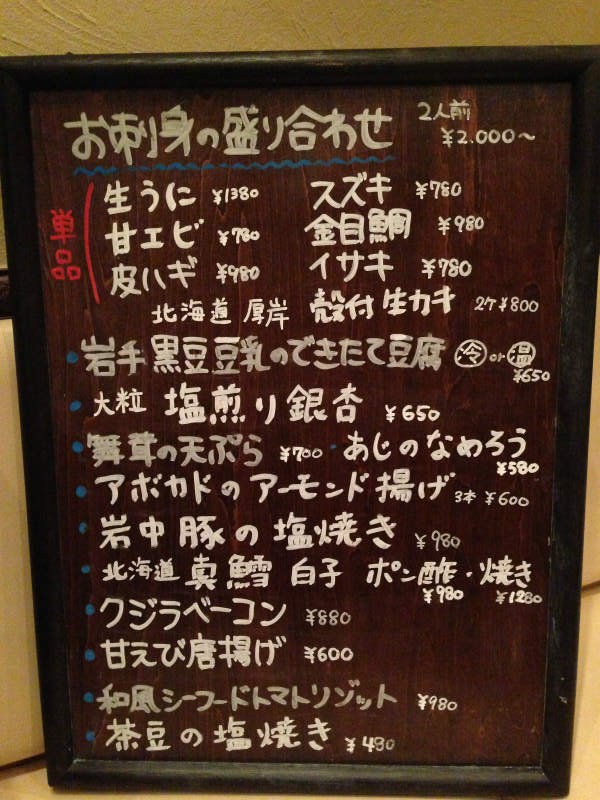 お刺身の盛り合わせ 2人前 ¥2.000〜
単品
生うに ¥1380 スズキ ¥780
甘エビ ¥780 金目鯛 ¥980
皮ハギ ¥980 イサキ ¥780
北海道 厚岸 殻付生カキ 2ケ¥800
岩手黒豆豆乳のできたて豆腐 冷or温 ¥650
大粒 塩煎り銀杏 ¥650
舞茸の天ぷら ¥700 ・あじのなめろう ¥580
アボカドのアーモンド揚げ 3本 ¥600
岩中豚の塩焼き ¥980
北海道 真鱈 白子 ポン酢・焼き ¥980 ¥1280
クジラベーコン ¥880
甘えび唐揚げ ¥600
和風シーフードトマトリゾット ¥980
茶豆の塩焼き ¥480